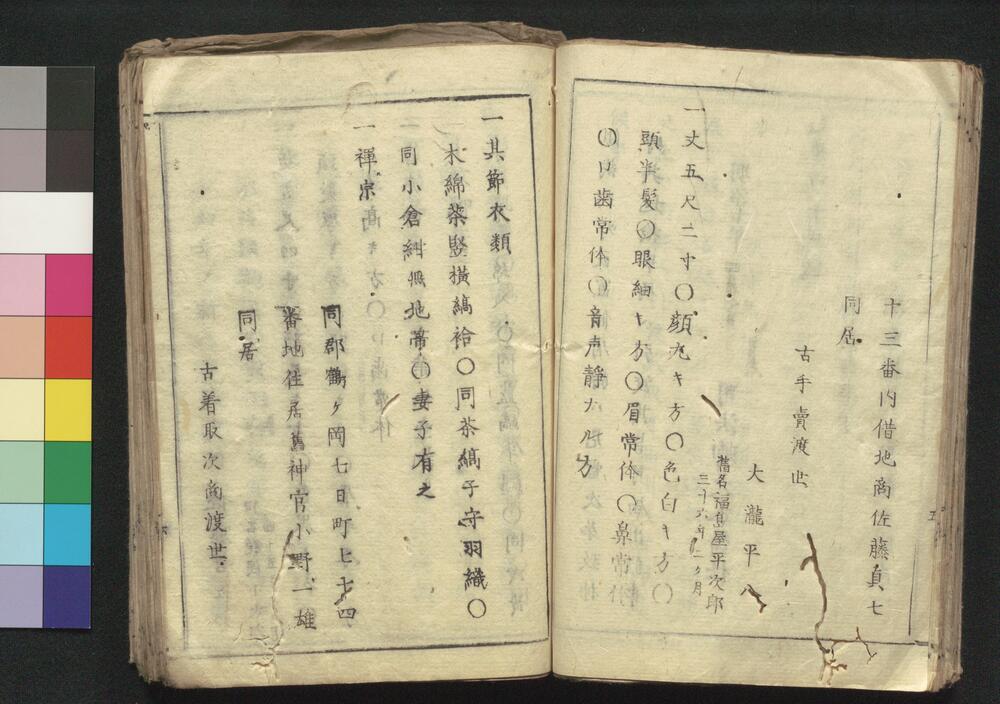 十三番内借地商佐藤真七
同居
古手賣渡世
大瀧平八
舊名福島屋平次郎
三十六年二ヶ月
一丈五尺二寸〇顔丸キ方〇色白キ方〇
頭半髪〇眼細キ方〇眉常体〇鼻常体
〇口歯常体〇音声静ナル方
一其節衣類
木綿藍竪横縞袷〇同茶縞子守羽織〇
同小倉紺無地帯〇妻子有之
一禅宗
同郡鶴ヶ岡七日町七十四
番地住居舊神官小野一雄
同居
古着取次商渡世